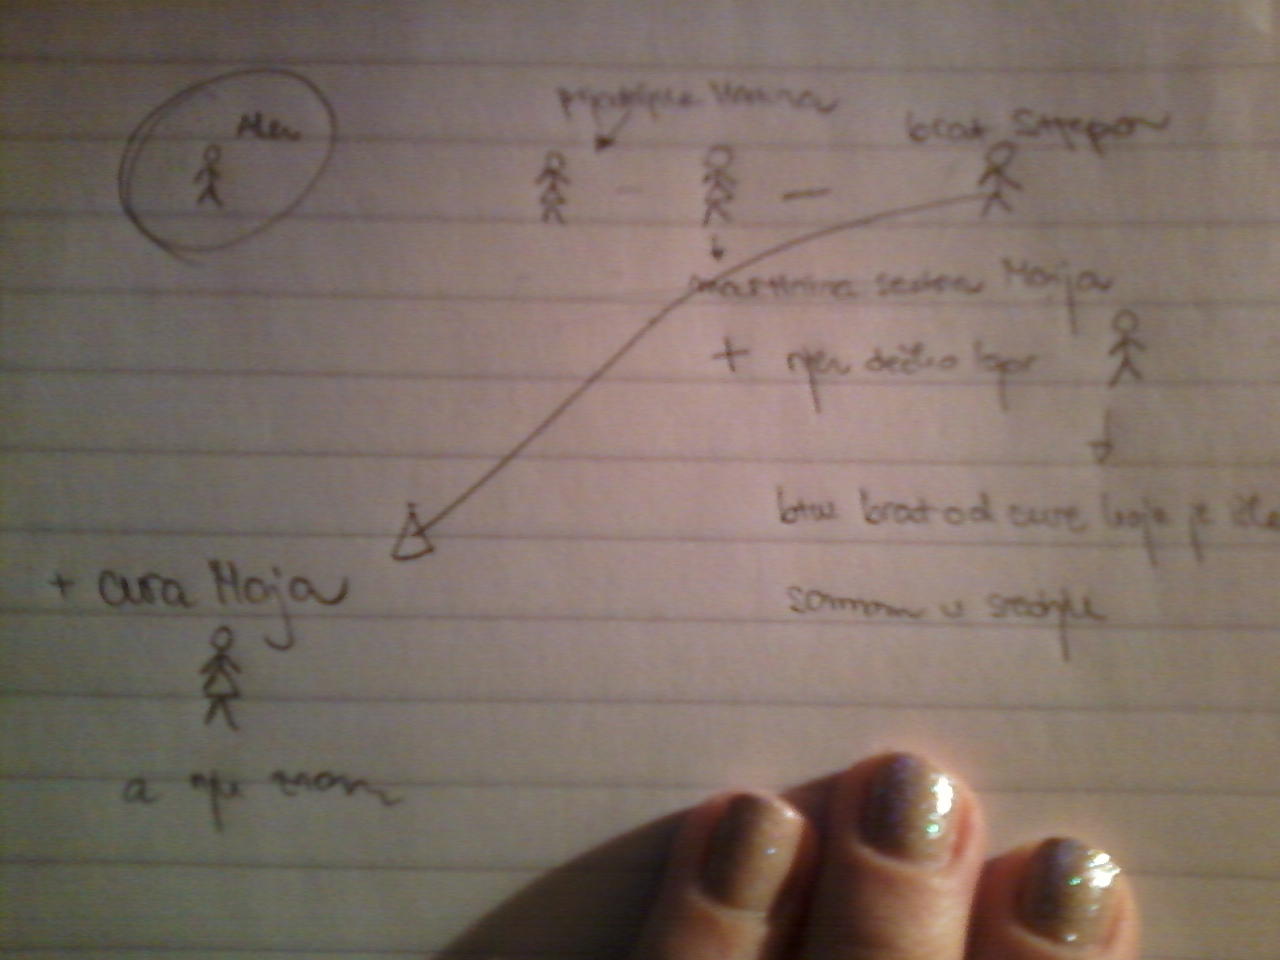 Alen
prijateljica Martina
brat Stjepan
martinina sestra Marija
+ njen dečko Igor
btw brat od cure koja je išla
samnom u srednju
+ cura Maja
a nju znam